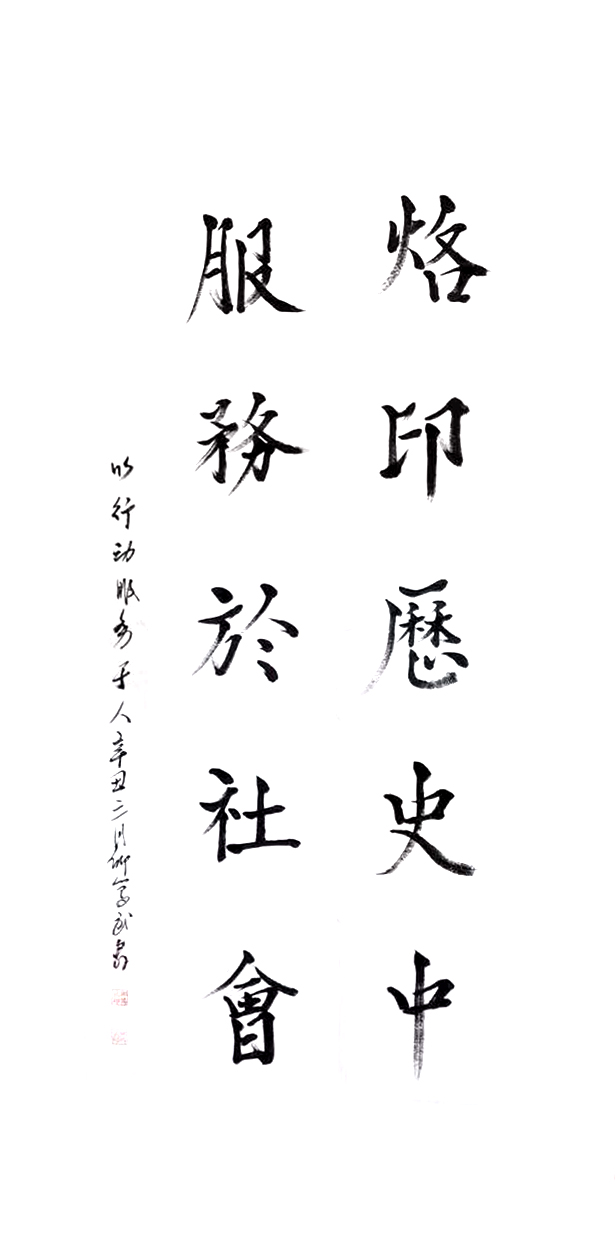 烙印歷史中
服務於社會
以行动服务于人辛丑二月